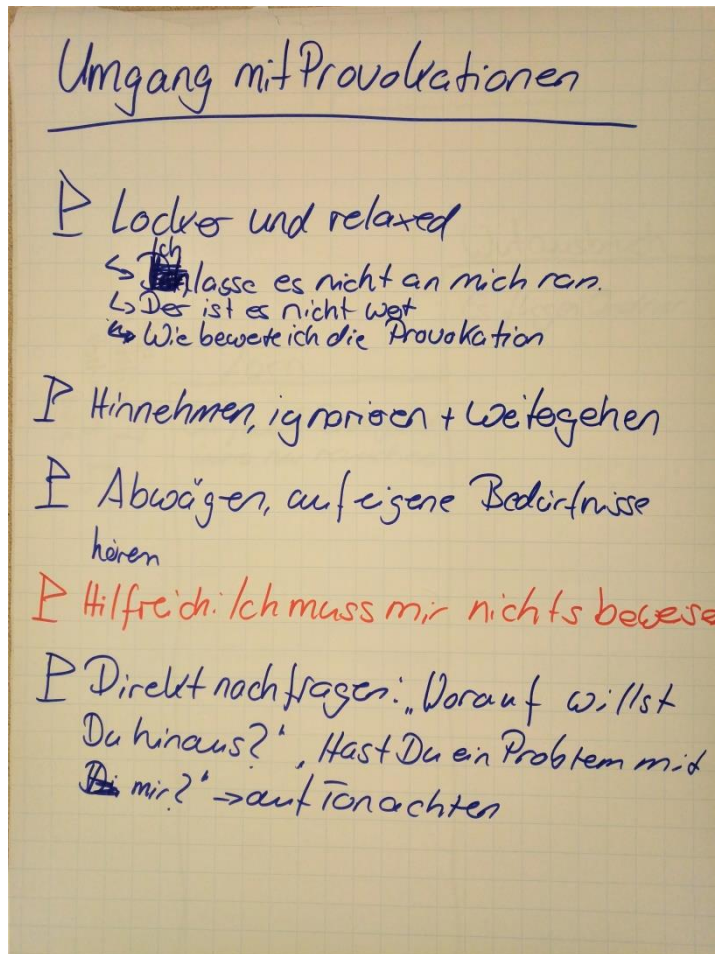 Umgang mit Provokationen
Locker und relaxed
↳ Ich lasse es nicht an mich ran.
↳ Der ist es nicht wert
↳ Wie bewerte ich die Provokation
Hinnehmen, ignorieren + weitergehen
Abwägen, auf eigene Bedürfnisse
hören
Hilfreich: Ich muss mir nichts beweise
Direkt nachfragen: „Worauf willst
Du hinaus?“, Hast Du ein Problem mit
mir?“ → auf Ton achten